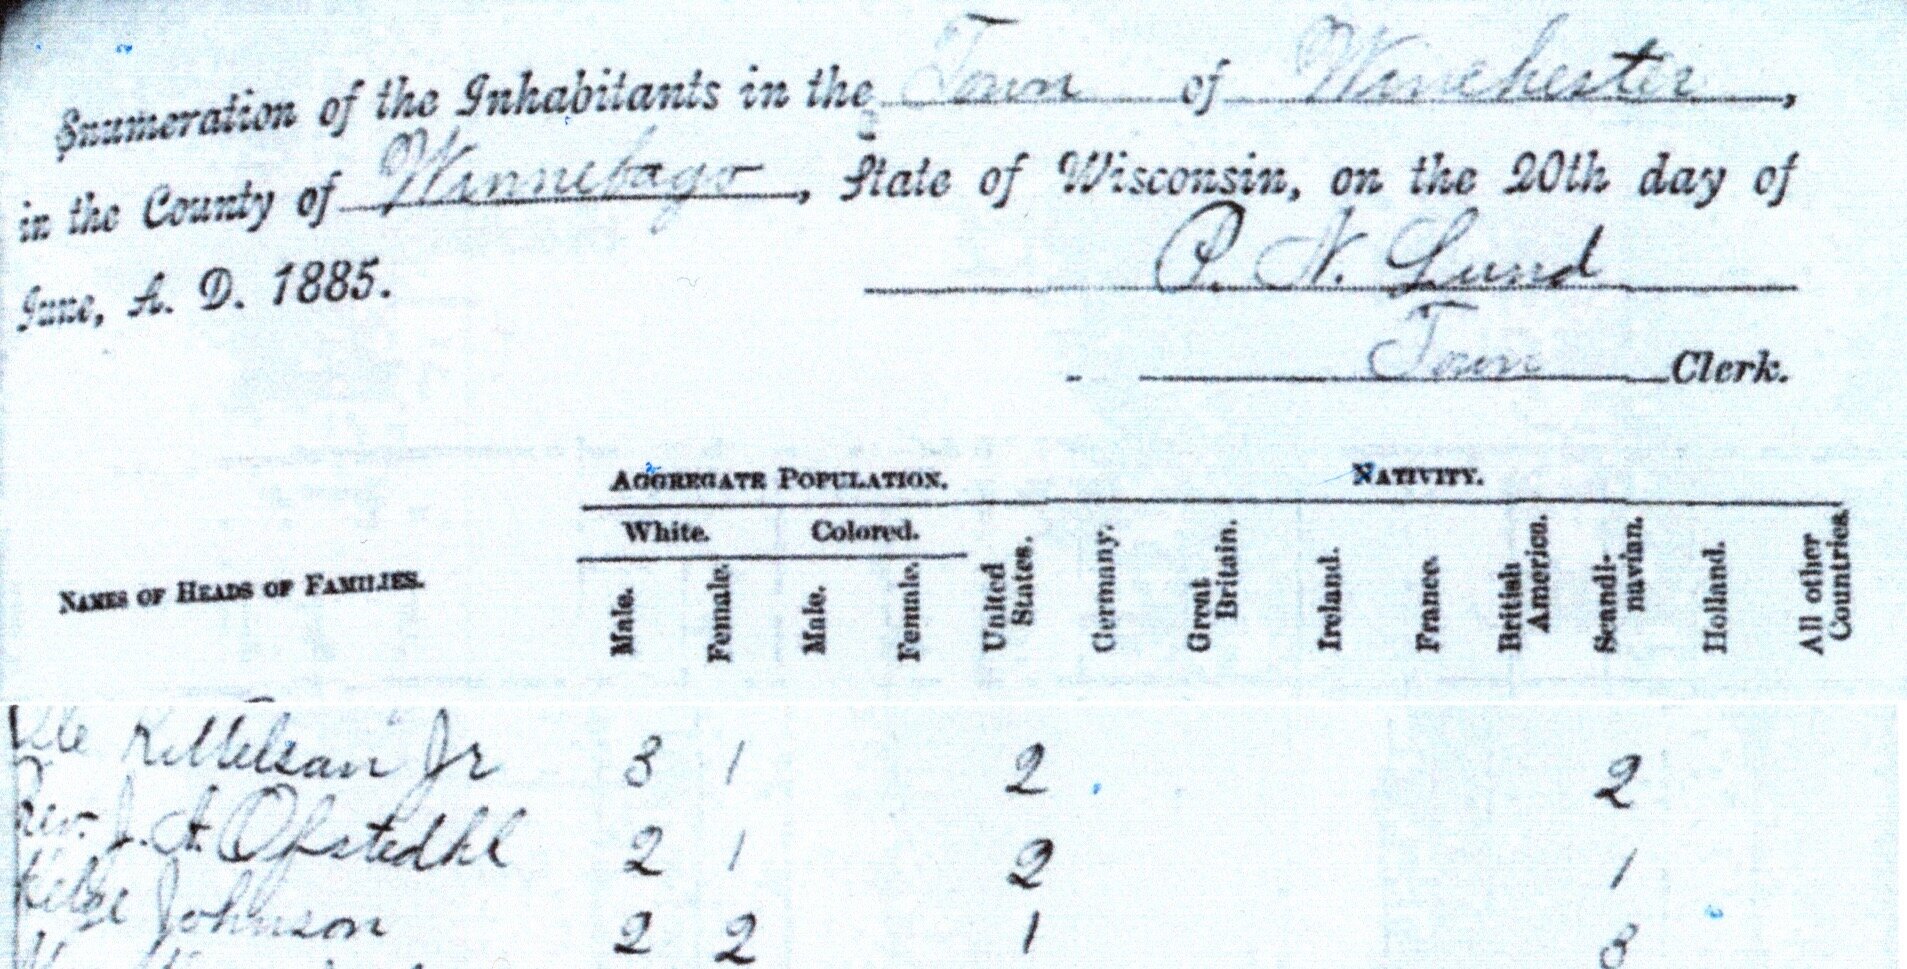 Enumeration of the Inhabitants in the Town of Winchester,
in the County of Winnebago, State of Wisconsin, on the 20th day of
June, A. D. 1885.
P. N. Lund
Town Clerk.
AGGREGATE POPULATION. NATIVITY.
White. Colored.
NAMES OF HEADS OF FAMILIES. Male. Female. Male. Female. United States. Germany. Great Britain. Ireland. France. British America. Scandi-navian. Holland. All other Countries.
Ole Kittelson Jr 3 1 2 2
Rev. J. A Ofstedhl 2 1 2 1
Johnson 2 2 1 3